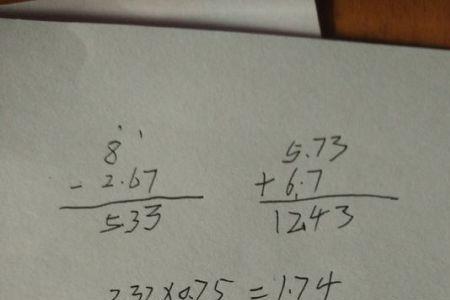 8 5.73
- 2.67 + 6.7
5.33 12.43
2.32×0.75 = 1.74